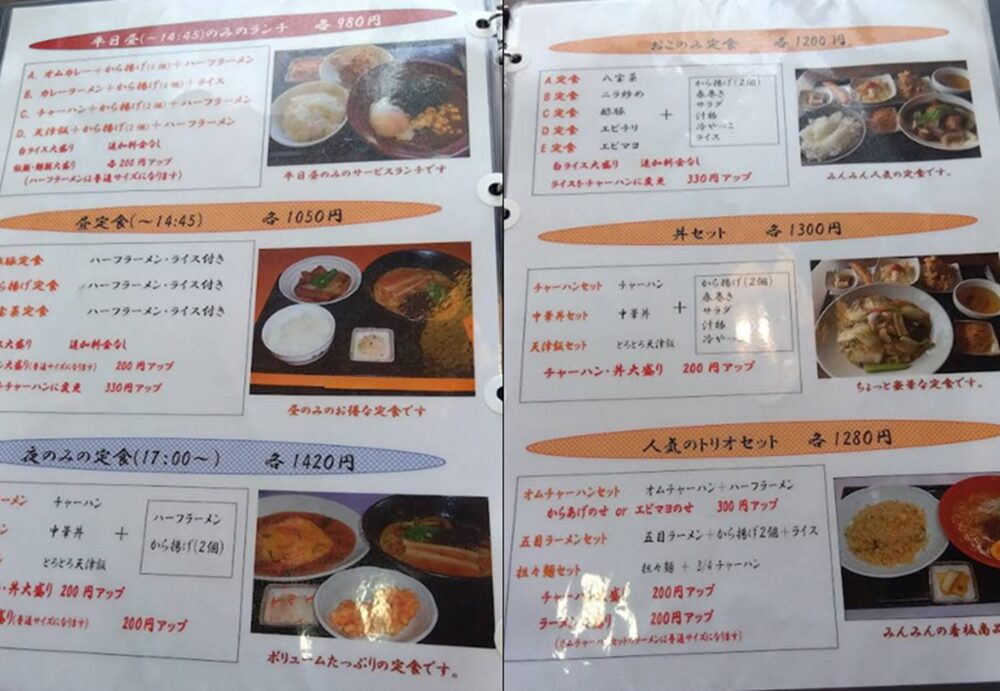 平日昼(〜14:45)のみのランチ 各980円
A. オムカレー+から揚げ(2個)+ハーフラーメン
B. カレーラーメン+から揚げ(2個)+ライス
C. チャーハン+から揚げ(2個)+ハーフラーメン
D. 天津飯+から揚げ(2個)+ハーフラーメン
白ライス大盛り 追加料金なし
各200円アップ
(ハーフラーメンは普通サイズになります)
平日昼のみのサービスランチです
昼定食(〜14:45) 各1050円
豚定食 ハーフラーメン・ライス付き
ら揚げ定食 ハーフラーメン・ライス付き
宝菜定食 ハーフラーメン・ライス付き
ス大盛り 追加料金なし
ン大盛り(普通サイズになります) 200円アップ
をチャーハンに変更 330円アップ
昼のみのお得な定食です
夜のみの定食(17:00〜) 各1420円
ーメン チャーハン
ン 中華丼 +
とろとろ天津飯
ハーフラーメン
から揚げ(2個)
・丼大盛り 200円アップ
盛り(普通サイズになります) 200円アップ
ボリュームたっぷりの定食です。
おこのみ定食 各1200円
A定食 八宝菜
B定食 ニラ炒め
C定食 酢豚 +
D定食 エビチリ
E定食 エビマヨ
から揚げ(2個)
春巻き
サラダ
汁物
冷やっこ
ライス
白ライス大盛り 追加料金なし
ライスをチャーハンに変更 330円アップ
みんみん人気の定食です。
丼セット 各1300円
チャーハンセット チャーハン
中華丼セット 中華丼 +
天津飯セット とろとろ天津飯
から揚げ(2個)
春巻き
サラダ
汁物
冷やっこ
チャーハン・丼大盛り 200円アップ
ちょっと豪華な定食です。
人気のトリオセット 各1280円
オムチャーハンセット オムチャーハン+ハーフラーメン
からあげのせ or エビマヨのせ 300円アップ
五目ラーメンセット 五目ラーメン+から揚げ2個+ライス
担々麺セット 担々麺 + 3/4チャーハン
チャーハン大盛り 200円アップ
ラーメン大盛り 200円アップ
(オムチャーハンセットのラーメンは普通サイズになります)
みんみんの看板商品